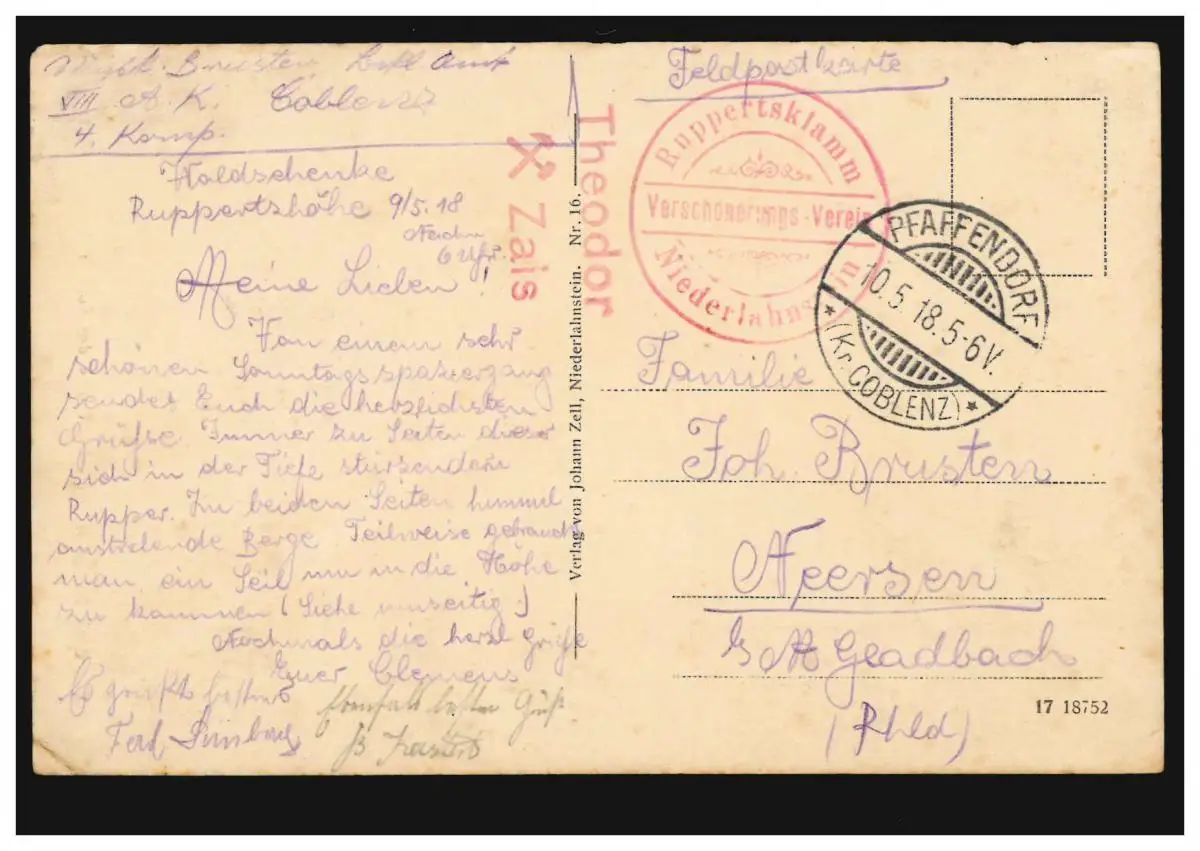 Brusten
VIII A. K. Coblenz
4. Komp.
Waldschenke
Ruppertshöhe 9/5. 18
6 Uhr.
Meine Lieben!
Von einem sehr
schönen Sonntagsspaziergang
sendet Euch die herzlichsten
Grüße. Immer zu Seiten dieser
sich in der Tiefe stürsendern
Rupper. Zu beiden Seiten himmel
anstrebende Berge. Teilweise gebraucht
man ein Seil um in die Höhe
zu kommen (Siehe umseitig)
Nochmals die herzl Grüße
Euer Clemens
Ebenfalls besten Gruß.
Verlag von Johann Zell, Niederlahnstein. Nr. 16.
Theodor
Zais
Feldpostkarte
Ruppertsklamm
Verschönerungs-Verein
Niederlahnstein
PFAFFENDORF
10.5.18.5-6V.
* (Kr. COBLENZ) *
Familie
Joh. Brusten
Neersen
Gladbach
(Rhld)
17 18752